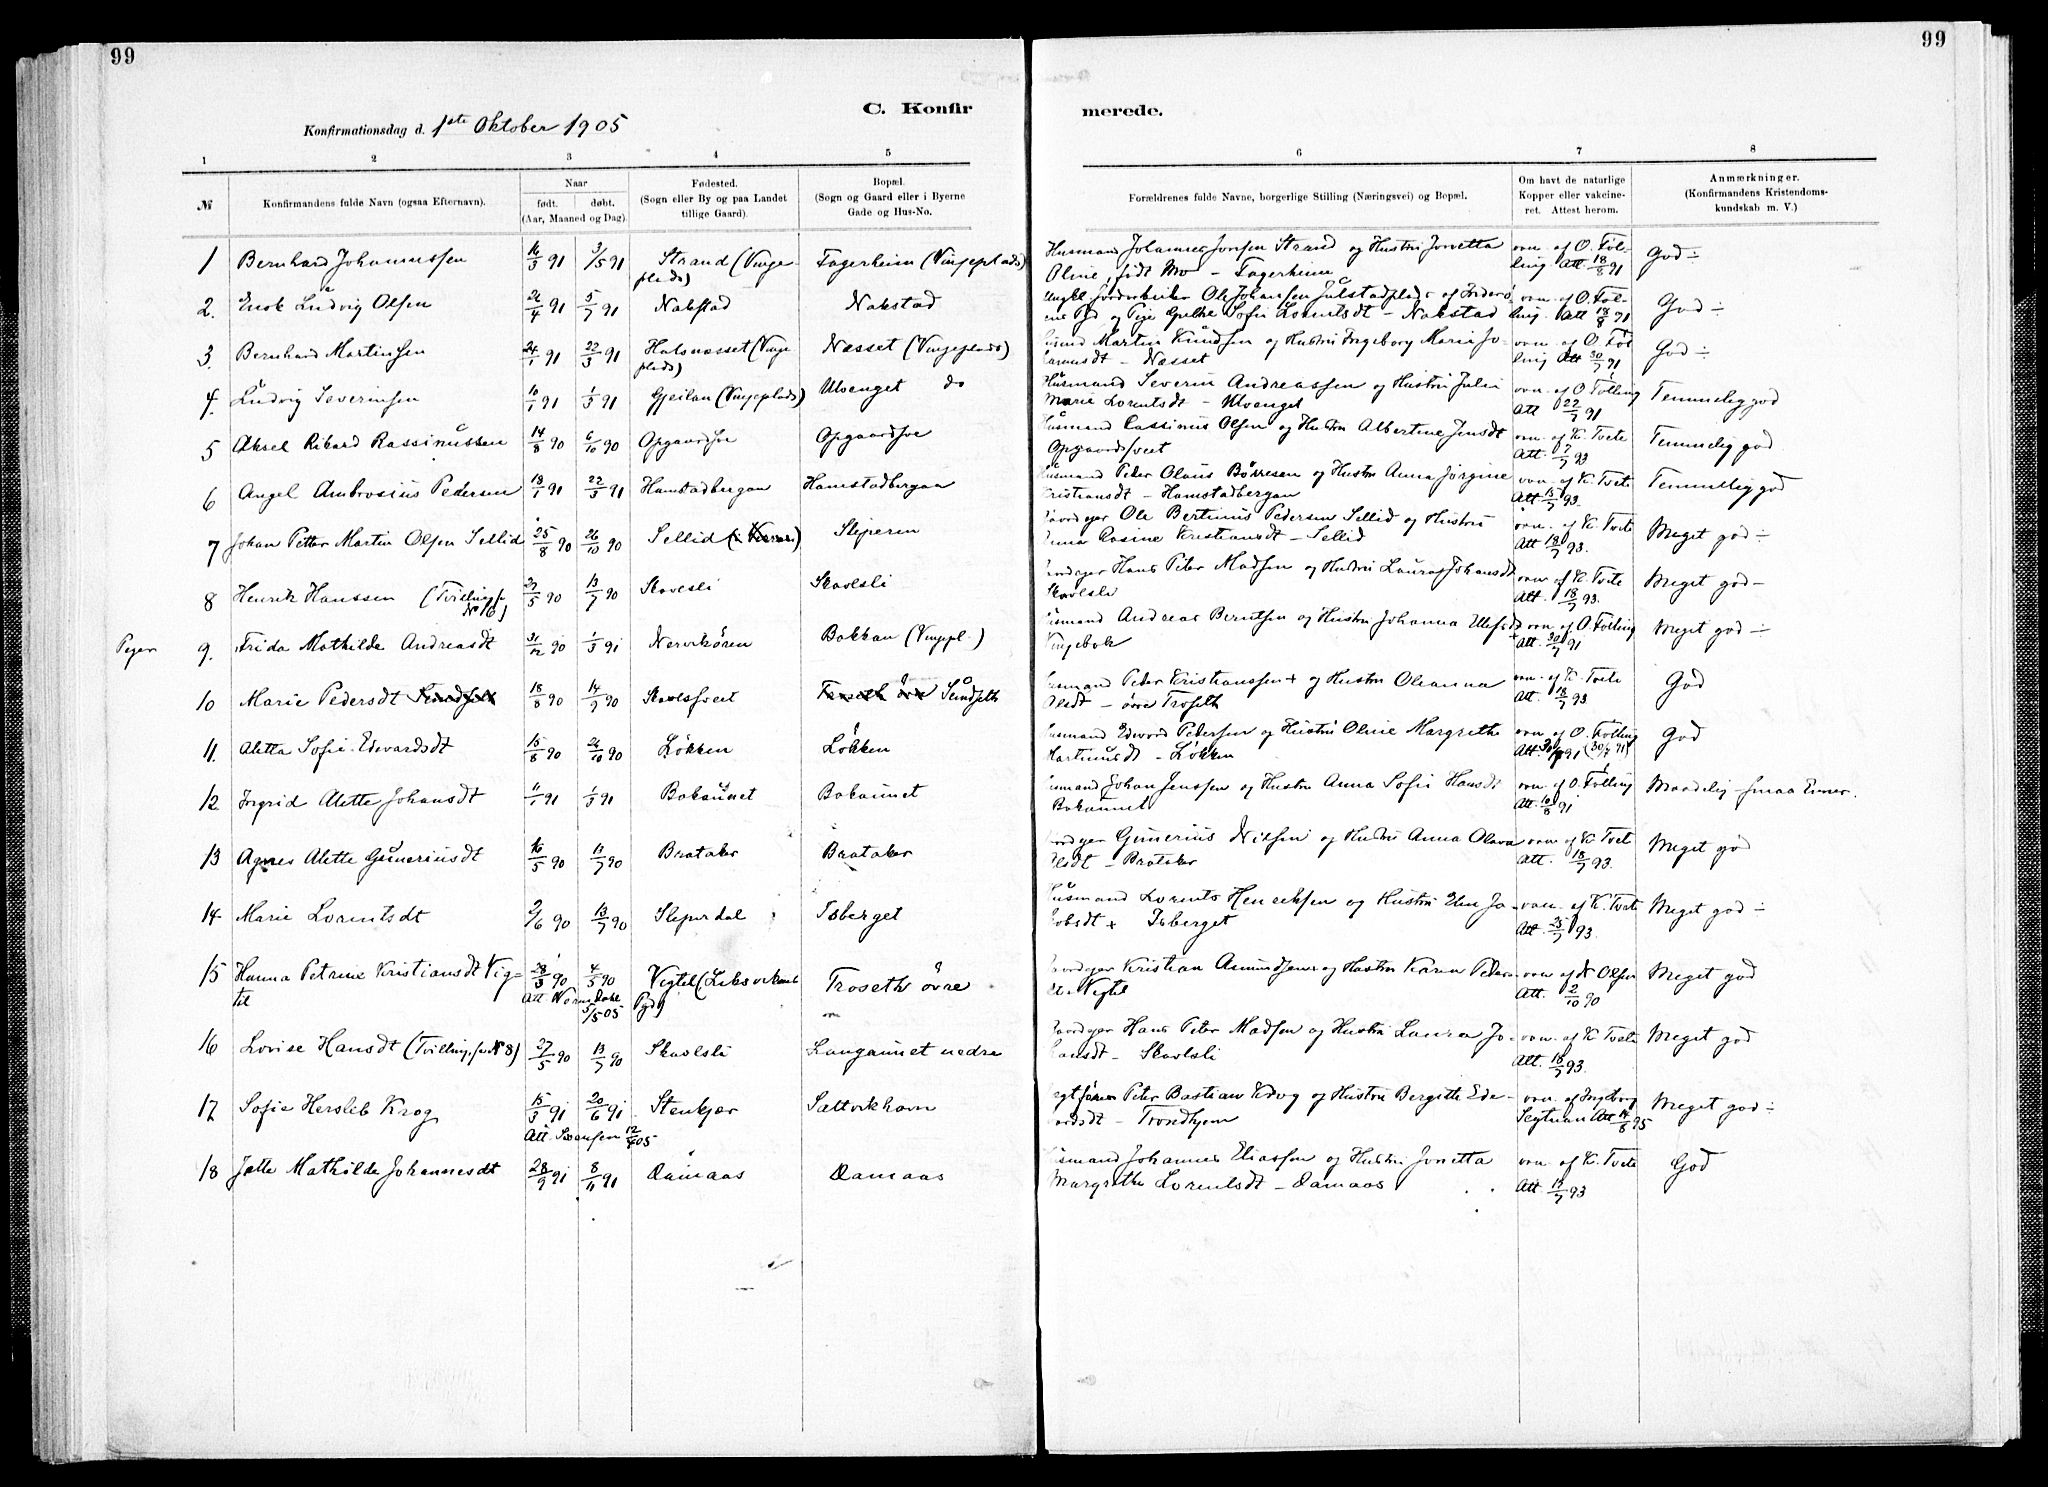 99
99
C. Konfir
merede.
Konfirmationsdag d. 1ste Oktober 1905
1 2 3 4 5
6 7 8
№ Konfirmandens fulde Navn (ogsaa Efternavn). Naar født. døbt. (Aar, Maaned og Dag). Fødested. (Sogn eller By og paa Landet tillige Gaard). Bopæl. (Sogn og Gaard eller i Byerne Gade og Hus-No.
Forældrenes fulde Navne, borgerlige Stilling (Næringsvei) og Bopæl. Om havt de naturlige Kopper eller vakcineret. Attest herom. Anmærkninger. (Konfirmandens Kristendomskundskab m. V.)
1 Bernhard Johannessen 16/3 91 3/5 91 Strand (Vinjeplads) Fagerheim (Vinjeplads)
Husmand Johannes Jonsen Strand og Hustru Jonetta
Oline, født Mo - Fagerheim
vacc. af O. Følling Att 18/8 91 God ÷
2. Enok Ludvig Olsen 26/4 91 5/7 91 Nakstad Nakstad
Ungkl. Jordarbeider Ole Johansen Julstadplads af Inderøens Pgd og Pige Grethe Sofie Lorentsdt - Nakstad
vacc. af O. Følling. Att 18/8 91 God ÷
3. Bernhard Martinsen 24/1 91 22/3 91 Halsnæsset (Vinjeplads) Næsset (Vinjeplads)
Martin Knudsen og Hustru Ingeborg Marie Jo
- Næsset
vacc. af O. Følling Att 30/7 91 God ÷
4. Ludvig Severinsen 10/1 91 1/3 91 Gjeilan (Vinjeplads) Ulvenget do
Husmand Severin Andreassen og Hustru Julie
Marie Lorentsdt - Ulvenget
vacc. af O. Følling Att 22/7 91 Temmelig god
5 Aksel Rikard Rassinussen 14/8 90 6/10 90 Opgaardsve Opgaardsve
Husmand Rassinus Olsen og Hustru Albertine Jensdt
Opgaardsveet
vacc. af K. Tvete Att. 7/7 93 Temmelig god
6 Angel Ambrosius Pedersen 18/1 91 22/3 91 Hamstadbergan Hamstadbergan
Husmand Peter Olaus Børresen og Hustru Anna Jørgine
Kristiansdt - Hamstadbergan
vacc. af K. Tvete Att 15/7 93. Temmelig god
7 Johan Petter Martin Olsen Sellid 25/8 90 26/10 90 Sellid Sliperen
Gaardejer Ole Bertinus Pedersen Sellid og Hustru
Anna Rasine Kristiansdt - Sellid
vacc. af K. Tvete Att 18/7 93. Meget god ÷
8 Henrik Hanssen (Tvilling, se No 16) 27/5 90 13/7 90 Skavlsli Skavlsli
Gaardejer Hans Peter Madsen og Hustru Laura Johansdt
Skavlsli
vacc. af K. Tvete Att. 18/7 93. Meget god -
Piger
9. Frida Mathilde Andreasdt 31/12 90 1/3 91 Nervikören Bakkan (Vinjepl.)
Husmand Andreas Berntsen og Hustru Johanna
vacc. af O. Følling Att. 30/7 91 Meget god ÷
10 Marie Pedersdt 18/8 90 14/9 90 Skavlsveet Sundseth
Husmand Peter Kristianssen + og Hustru Oleanna
Olsdt - øvre Troseth
vacc. af K. Tvete Att. 18/7 93 God
11. Aletta Sofie Edvardsdt 15/8 90 26/10 90 Løkken Løkken
Husmand Edvard Pedersen og Hustru Oline Margrethe
Martinusdt - Løkken
vacc. af O. Følling Att. 30/7 91 (30/7 91) God
12 Ingrid Alette Johansdt 11/1 91 1/3 91 Bakaunet Bakaunet
Husmand Johan Jenssen og Hustru Anna Sofie Hansdt
Bakaunet
vacc. af O. Følling Att. 10/8 91 Maadelig - smaa Evner.
13 Agnes Alette Guneriusdt 16/5 90 13/7 90 Brataker Brataker
Gaardejer Gunerius Nilsen og Hustru Anna Olava
Olsdt - Brataker
vacc. af K. Tvete Att. 18/7 93. Meget god
14 Marie Lorentsdt 2/6 90 13/7 90 Sliperdal Isberget
Husmand Lorents Henriksen og Hustru Elen Jakobsdt + Isberget
vacc. af K. Tvete Att. 25/7 93. Meget god ÷
15 Hanna Petrine Kristiansdt Vigtil 28/3 90 4/5 90 Vigtil (Leksvikens Pgd) Troseth øvre
Att 3/5 05
Gaardejer Kristian Asmundsen og Hustru Karen Peders
- Vigtil
vacc. af N Olsen Att. 2/10 90 Meget god
16 Lovise Hansdt (Tvilling, se № 8) 27/5 90 13/7 90 Skavlsli Langaunet nedre
Gaardejer Hans Peter Madsen og Hustru Laura Johansdt - Skavlsli
vacc. af K Tvete Att. 18/7 93. Meget god
17 Sofie Hersleb Krog 15/3 91 20/6 91 Stenkjær Sættvikhavn
Att. Svensen 12/4 05
Peter Bastian Krog og Hustru Bergitte Edvardsdt - Trondhjem
vacc. af Ingeborg Segtnan Att 14/8 95 Meget god ÷
18 Jette Mathilde Johannesdt 28/9 91 8/11 91 Damaas Damaas
Husmand Johannes Eliassen og Hustru Jonetta
Margrethe Lorentsdt - Damaas
vacc. af K. Tvete Att. 13/7 93 God